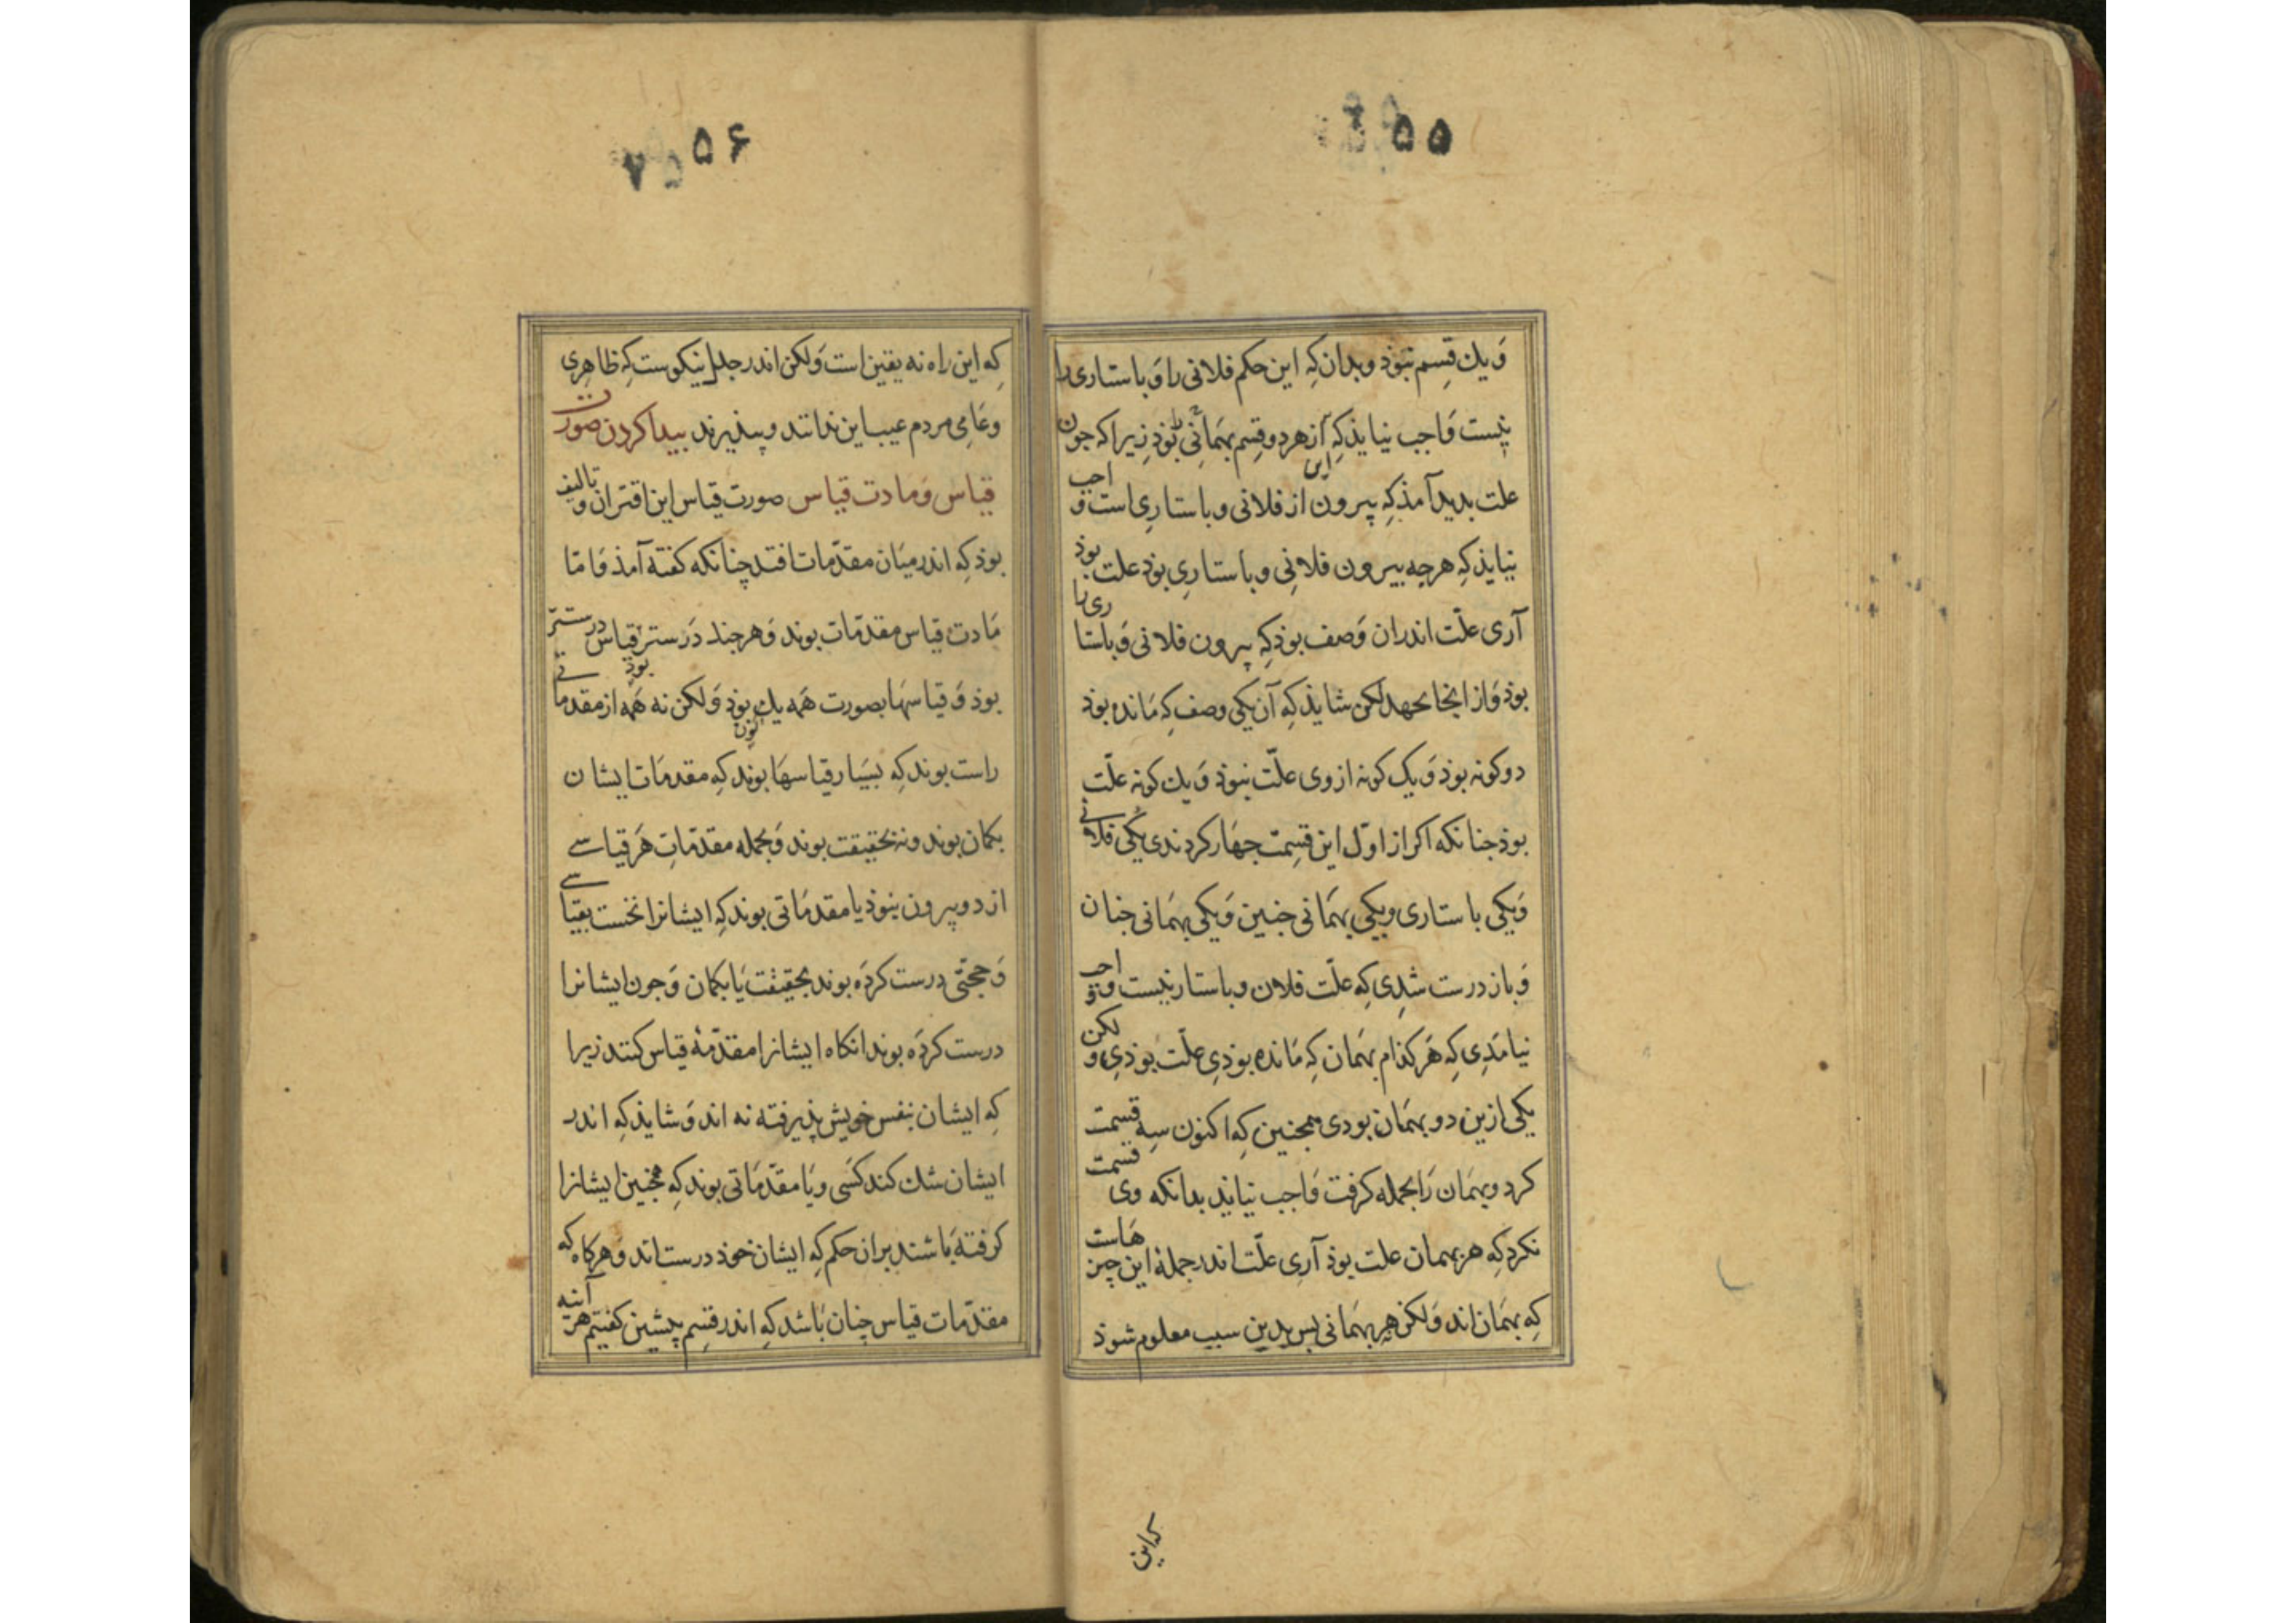 ۵۵
وَ یك قِسم نبَوَذ و بدان كِه این حكم فلانی را وَ باستاری را
نیست وَاجب نیایذ كِه از هر دو قِسم بهمَانِی بُوَذ زیرا كه جون
علت بدید آمذ كِه بیرون از فلانی و باستارِی است واجب
نیایذ كِه هرچه بیرون فلانِی و باستارِی بوذ علت بوذ
آری علّت اندران وَصف بوذ كِه بیرون فلانی وَ باستاری را
بوذ وَ از اینجا بجهد لكن شایذ كِه آن یكی وصف كِه مَانده بوذ
دو كونه بوذ وَ یك كونه از وی علّت نبوذ وَ یك كونه علّت
بوذ جنانكه اكر از اوّل این قسِمت جهَار كردندی یكی فلانی
وَ یكی باستاری و یكی بهمَانی جنین وَ یكی بهمَانی جنان
وَ باز درست شدِی كِه علّت فلان و باستار نیست و واجب
نیامَدِی كِه هَر كذام بهمَان كِه مَانده بوذیِ علّت بوذیِ و لكن
یكی ازین دو بهمَان بودی همجنین كِه اكنون سِه قسمت
كرد و بهمَان رَا بجمله كرفت وَاجب نیایذ بدانكه وی قسمت
نكرد كِه هر بهمان علت بوذ آرِی علّت اندر جملهٔ این چیزهَاست
كِه بهمَان اند وَلكن هر بهمَانی بس بدین سبب معلوم شوذ
كه این
۵۶
كِه این راه نه یقین است وَلكن اندر جدل نیكوست كِه ظاهِری
و عَامِی مردم عیب این ندانند و بپذیرند بیدا كردن صورت
قیاس وَ مادت قیاس صورت قیاس این اقتران و تالیف
بوذ كِه اندر میَان مقدّمات افتد چنانكه كفته آمذ وَ امّا
مَادت قیاس مقدّمات بوند وَ هر جند دَرستر قیاس درستتر
بوذ وَ قیاسهَا بصورت همَه یك كون بوذ وَلكن نه همَه از مقدماتی
راست بوند كِه بسَیار قیاسهَا بوند كِه مقدمَات ایشان
بكمان بوند و نه بحقیقت بوند وَ بجمله مقدّمَاتِ هَر قیاسے
از دو بیرون نبوَذ یا مقدمَاتی بوند كِه ایشانرا نخست بقیاسے
وَ حجّتی درست كردَه بوند بحقیقت یَا بكمان وَ جون ایشانرا
درست كردَه بوند انكاه ایشانرا مقدّمهٔ قیاس كنند زیرا
كِه ایشان بنفس خویش پذیرفته نه اند وَ شایذ كِه اندر
ایشان شك كند كسَی و یَا مقدّمَاتی بوند كِه همجنین ایشانرا
كرفته بَاشند بران حكم كِه ایشان خوذ درست اند وَ هركاه كه
مقدّمات قیاس چنان بَاشد كِه اندر قِسم پیشین كفتیم هر آینه